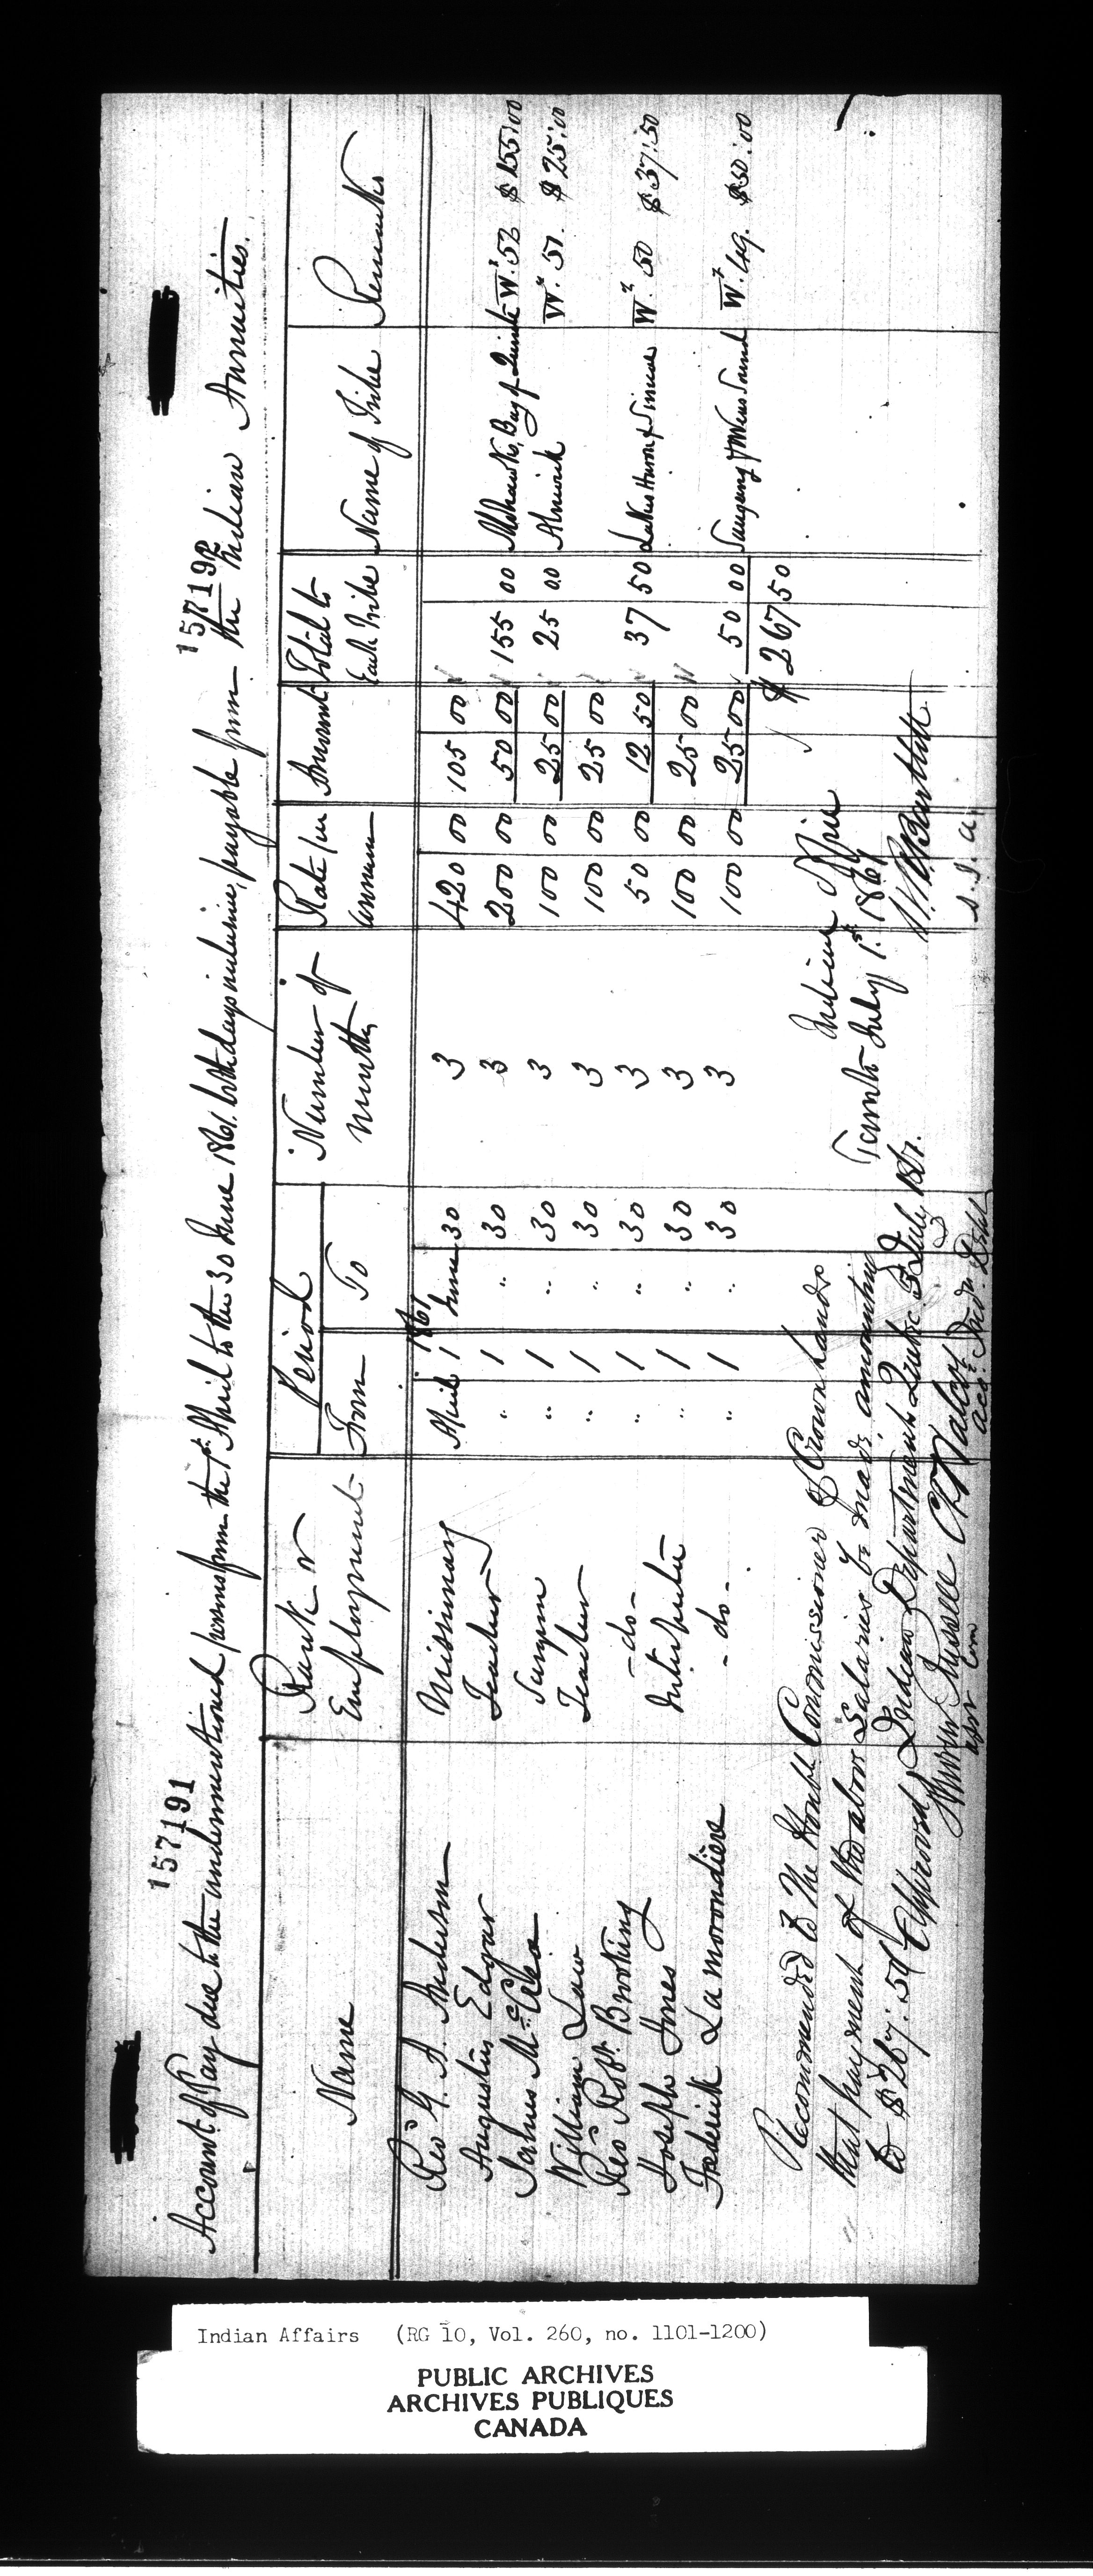 157191
157192
Account of Pay due to the undermentioned persons from the 1st April to the 30 June 1861, both days inclusive, payable from the Indian Annuities.
Name | Rank or Employment | Period From | To | Number of months | Rate per annum | Amount | Total to Each Tribe | Name of Tribe | Remarks
1861
Revd G. A. Anderson | Missionary | April 1 | June 30 | 3 | 420 00 | 105 00
Augustus Edgar | Teacher | " 1 | " 30 | 3 | 200 00 | 50 00 | 155 00 | Mohawks, Bay of Quinte | W. 52 $155:00
James McClea | Surgeon | " 1 | " 30 | 3 | 100 00 | 25 00 | 25 00 | Alnwick | W. 51. $25:00
William Law | Teacher | " 1 | " 30 | 3 | 100 00 | 25 00
Revd Robt. Brooking | -do- | " 1 | " 30 | 3 | 50 00 | 12 50 | 37 50 | Lakes Huron & Simcoe | W. 50 $37:50
Joseph Jones | Interpreter | " 1 | " 30 | 3 | 100 00 | 25 00
Frederick Lamorondière | -do- | " 1 | " 30 | 3 | 100 00 | 25 00 | 50 00 | Saugeeng & Owens Sound | W. 49. $50:00
$267 50
Indian Office
Toronto July 1st 1861
W. R. Bartlett
S. I. A.
Recommended to The Honble Commissioner of Crown Lands
that payment of the above Salaries be made, amounting
to $267.50 Indian Department, Quebec 3d July 1861.
Approved
Andrew Russell
C T Walcot
acct. Ind. Dept
Indian Affairs (RG 10, Vol. 260, no. 1101-1200)
PUBLIC ARCHIVES
ARCHIVES PUBLIQUES
CANADA